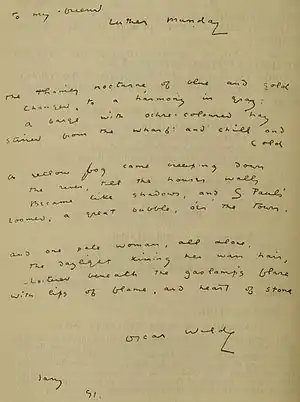 To my friend
Luther Munday
The Thames nocturne of blue and gold
Changed to a harmony in gray:
a barge with ochre-coloured hay
stirred from the wharf: and chill and
cold
a yellow fog came creeping down
The river, till the houses walls
Became like shadows, and S. Pauls'
Loomed, a great bubble, o'er the town.
and one pale woman, all alone,
The daylight kissing her wan hair,
Loitered beneath the gaslamp's flare
with lips of flame, and heart of stone
Oscar Wilde
Jany
91.